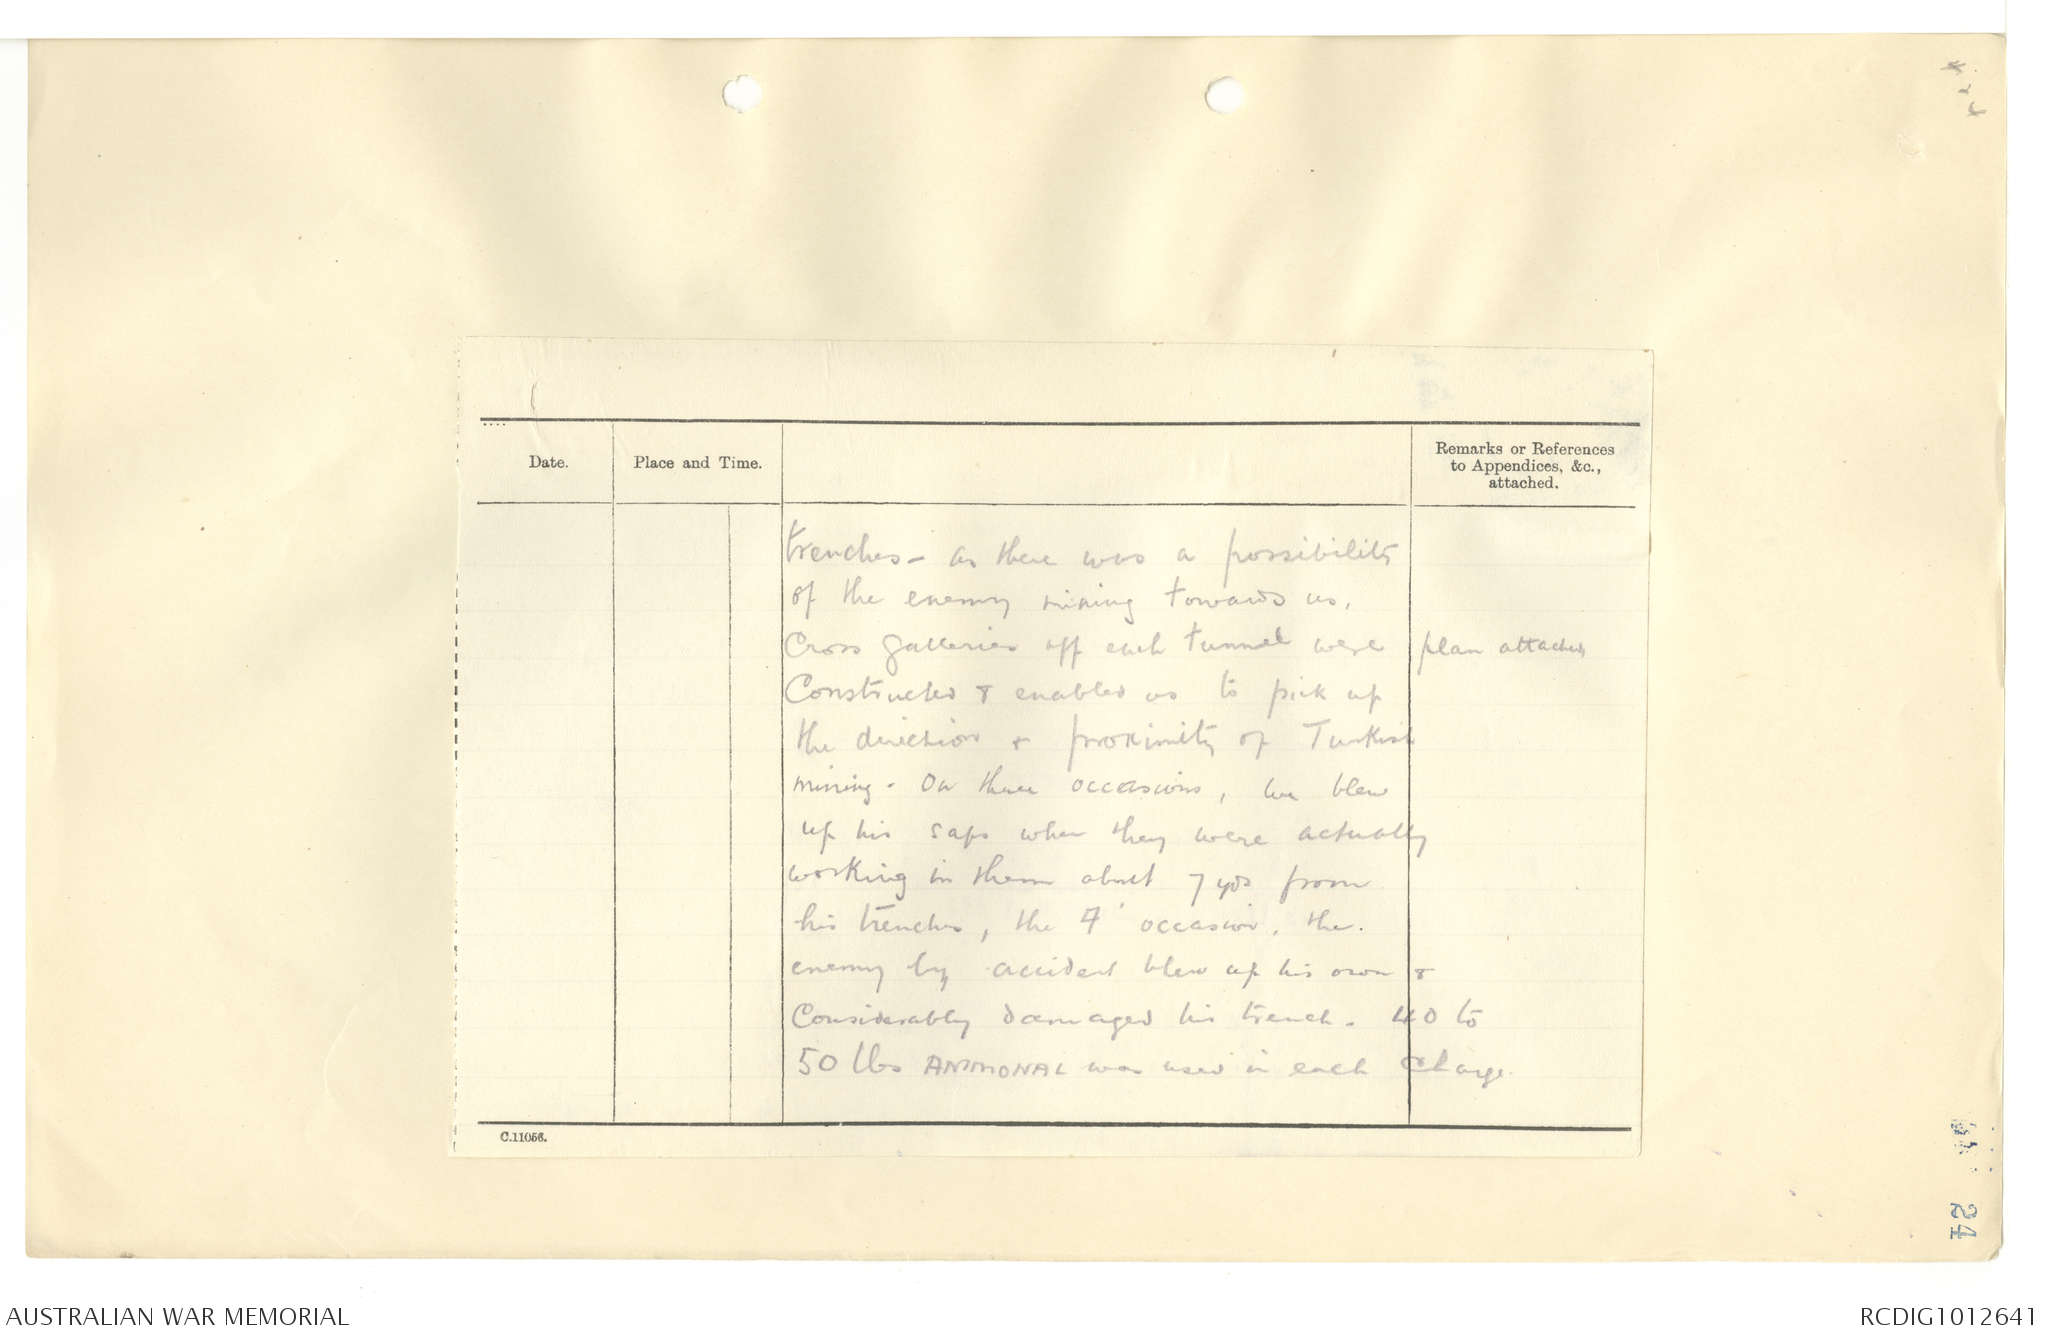 Date.
Place and Time.
Remarks or References
to Appendices, &c.,
attached.
trenches - as there was a possibility
of the enemy mining towards us.
Cross galleries off each tunnel were
plan attached
Constructed & enabled us to pick up
the direction & proximity of Turkish
mining. On three occasions, we blew
up his saps when they were actually
working in them about 7 yds from
his trenches, the 4' occasion, the.
enemy by accident blew up his own &
Considerably damaged his trench. 40 to
50 lbs AMMONAL was used in each charge.
C.11056.
24
AUSTRALIAN WAR MEMORIAL
RCDIG1012641